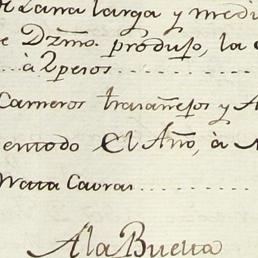 de Lana larga y medi
e Dzmo. produjo, la
... a 2 pesos ............
Carneros trasañejos y A
entodo El Año, à
Mata Cavras ............
A la Buelta